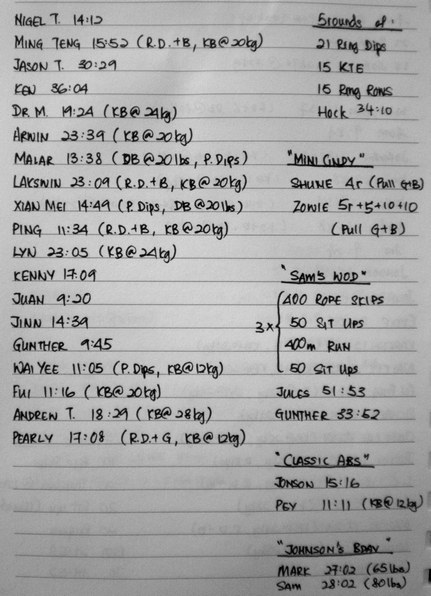 NIGEL T. 14:12
MING TENG 15:52 (R.D.+B, KB@20kg)
JASON T. 30:29
KEN 36:04
DR. M. 19:24 (KB@24kg)
ARWIN 23:39 (KB@20kg)
MALAR 13:38 (DB@20lbs, P. Dips)
LAKSWIN 23:09 (R.D.+B, KB@20kg)
XIAN MEI 14:49 (P. Dips, DB@20lbs)
PING 11:34 (R.D.+B, KB@20kg)
LYN 23:05 (KB@24kg)
KENNY 17:09
JUAN 9:20
JINN 14:39
GUNTHER 9:45
WAI YEE 11:05 (P. Dips, KB@12kg)
FUI 11:16 (KB@20kg)
ANDREW T. 18:29 (KB@28kg)
PEARLY 17:08 (R.D.+G, KB@12kg)
5 rounds of:
21 Ring Dips
15 KTE
15 Ring Rows
Hock 34:10
"MINI CINDY"
SHUNE 4r (Pull G+B)
ZOWIE 5r+5+10+10
(Pull G+B)
"SAM'S WOD"
3x
400 ROPE SKIPS
50 SIT UPS
400m RUN
50 SIT UPS
JULES 51:53
GUNTHER 33:52
"CLASSIC ABS"
JONSON 15:16
PEY 11:11 (KB@12kg)
"JOHNSON'S BDAY"
MARK 27:02 (65lbs)
SAM 28:02 (80lbs)